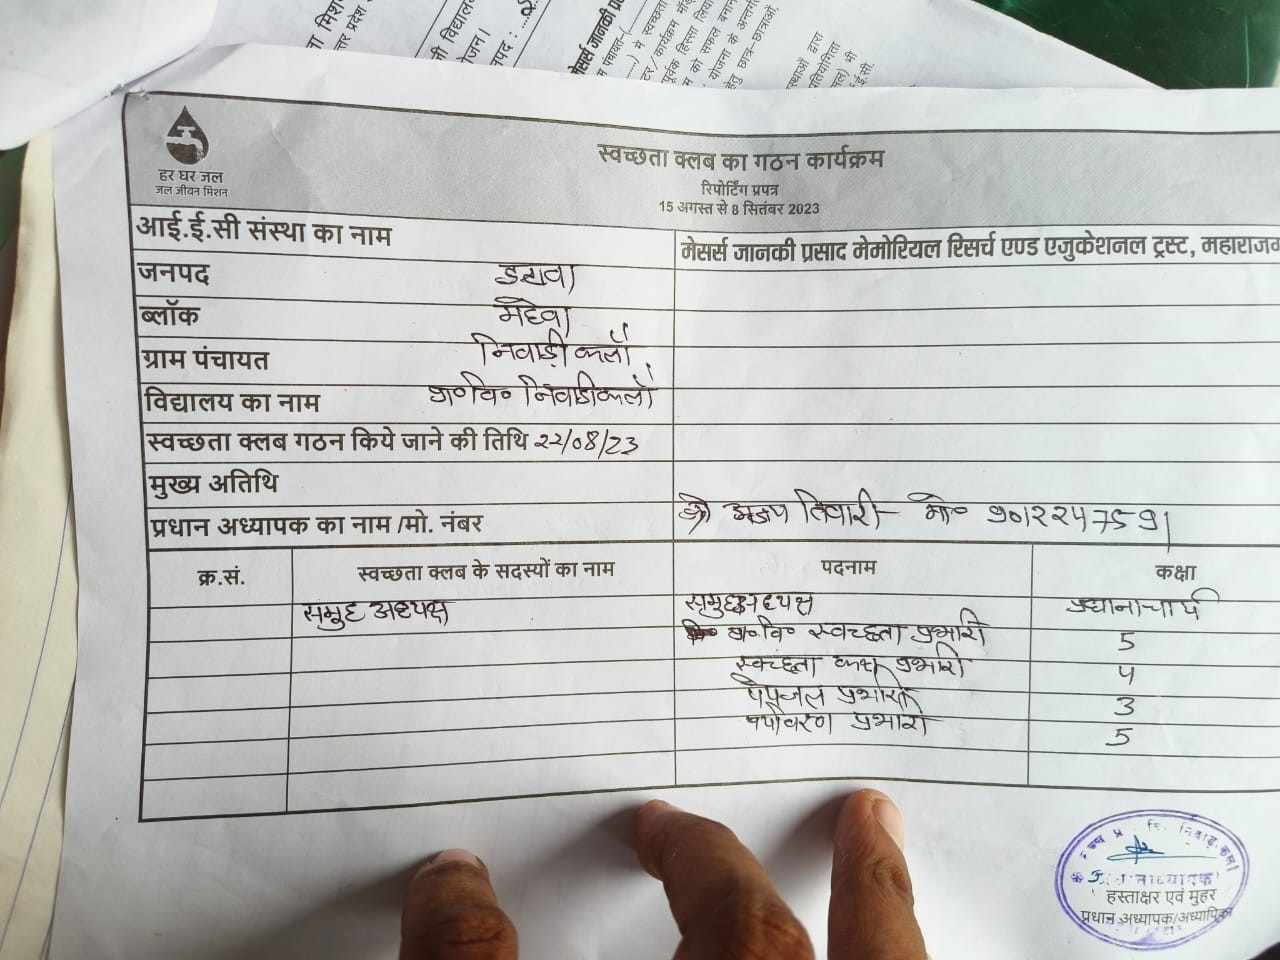 हर घर जल
जल जीवन मिशन
स्वच्छता क्लब का गठन कार्यक्रम
रिपोर्टिंग प्रपत्र
15 अगस्त से 8 सितंबर 2023
आई.ई.सी संस्था का नाम मेसर्स जानकी प्रसाद मेमोरियल रिसर्च एण्ड एजुकेशनल ट्रस्ट,
जनपद इटावा
ब्लॉक महेवा
ग्राम पंचायत निवाड़ी कलाँ
विद्यालय का नाम प्रा०वि० निवाडीकलाँ
स्वच्छता क्लब गठन किये जाने की तिथि 22/08/23
मुख्य अतिथि
प्रधान अध्यापक का नाम /मो. नंबर तिवारी- मो० 9012247591
क्र.सं. स्वच्छता क्लब के सदस्यों का नाम पदनाम कक्षा
समुह अध्यक्ष समुह अध्यक्ष प्रधानाचार्य
प्रा०वि० स्वच्छता प्रभारी 5
स्वच्छता कक्ष प्रभारी 4
पेयजल प्रभारी 3
पर्यावरण प्रभारी 5
हस्ताक्षर एवं मुहर
प्रधान अध्यापक/अध्यापिका